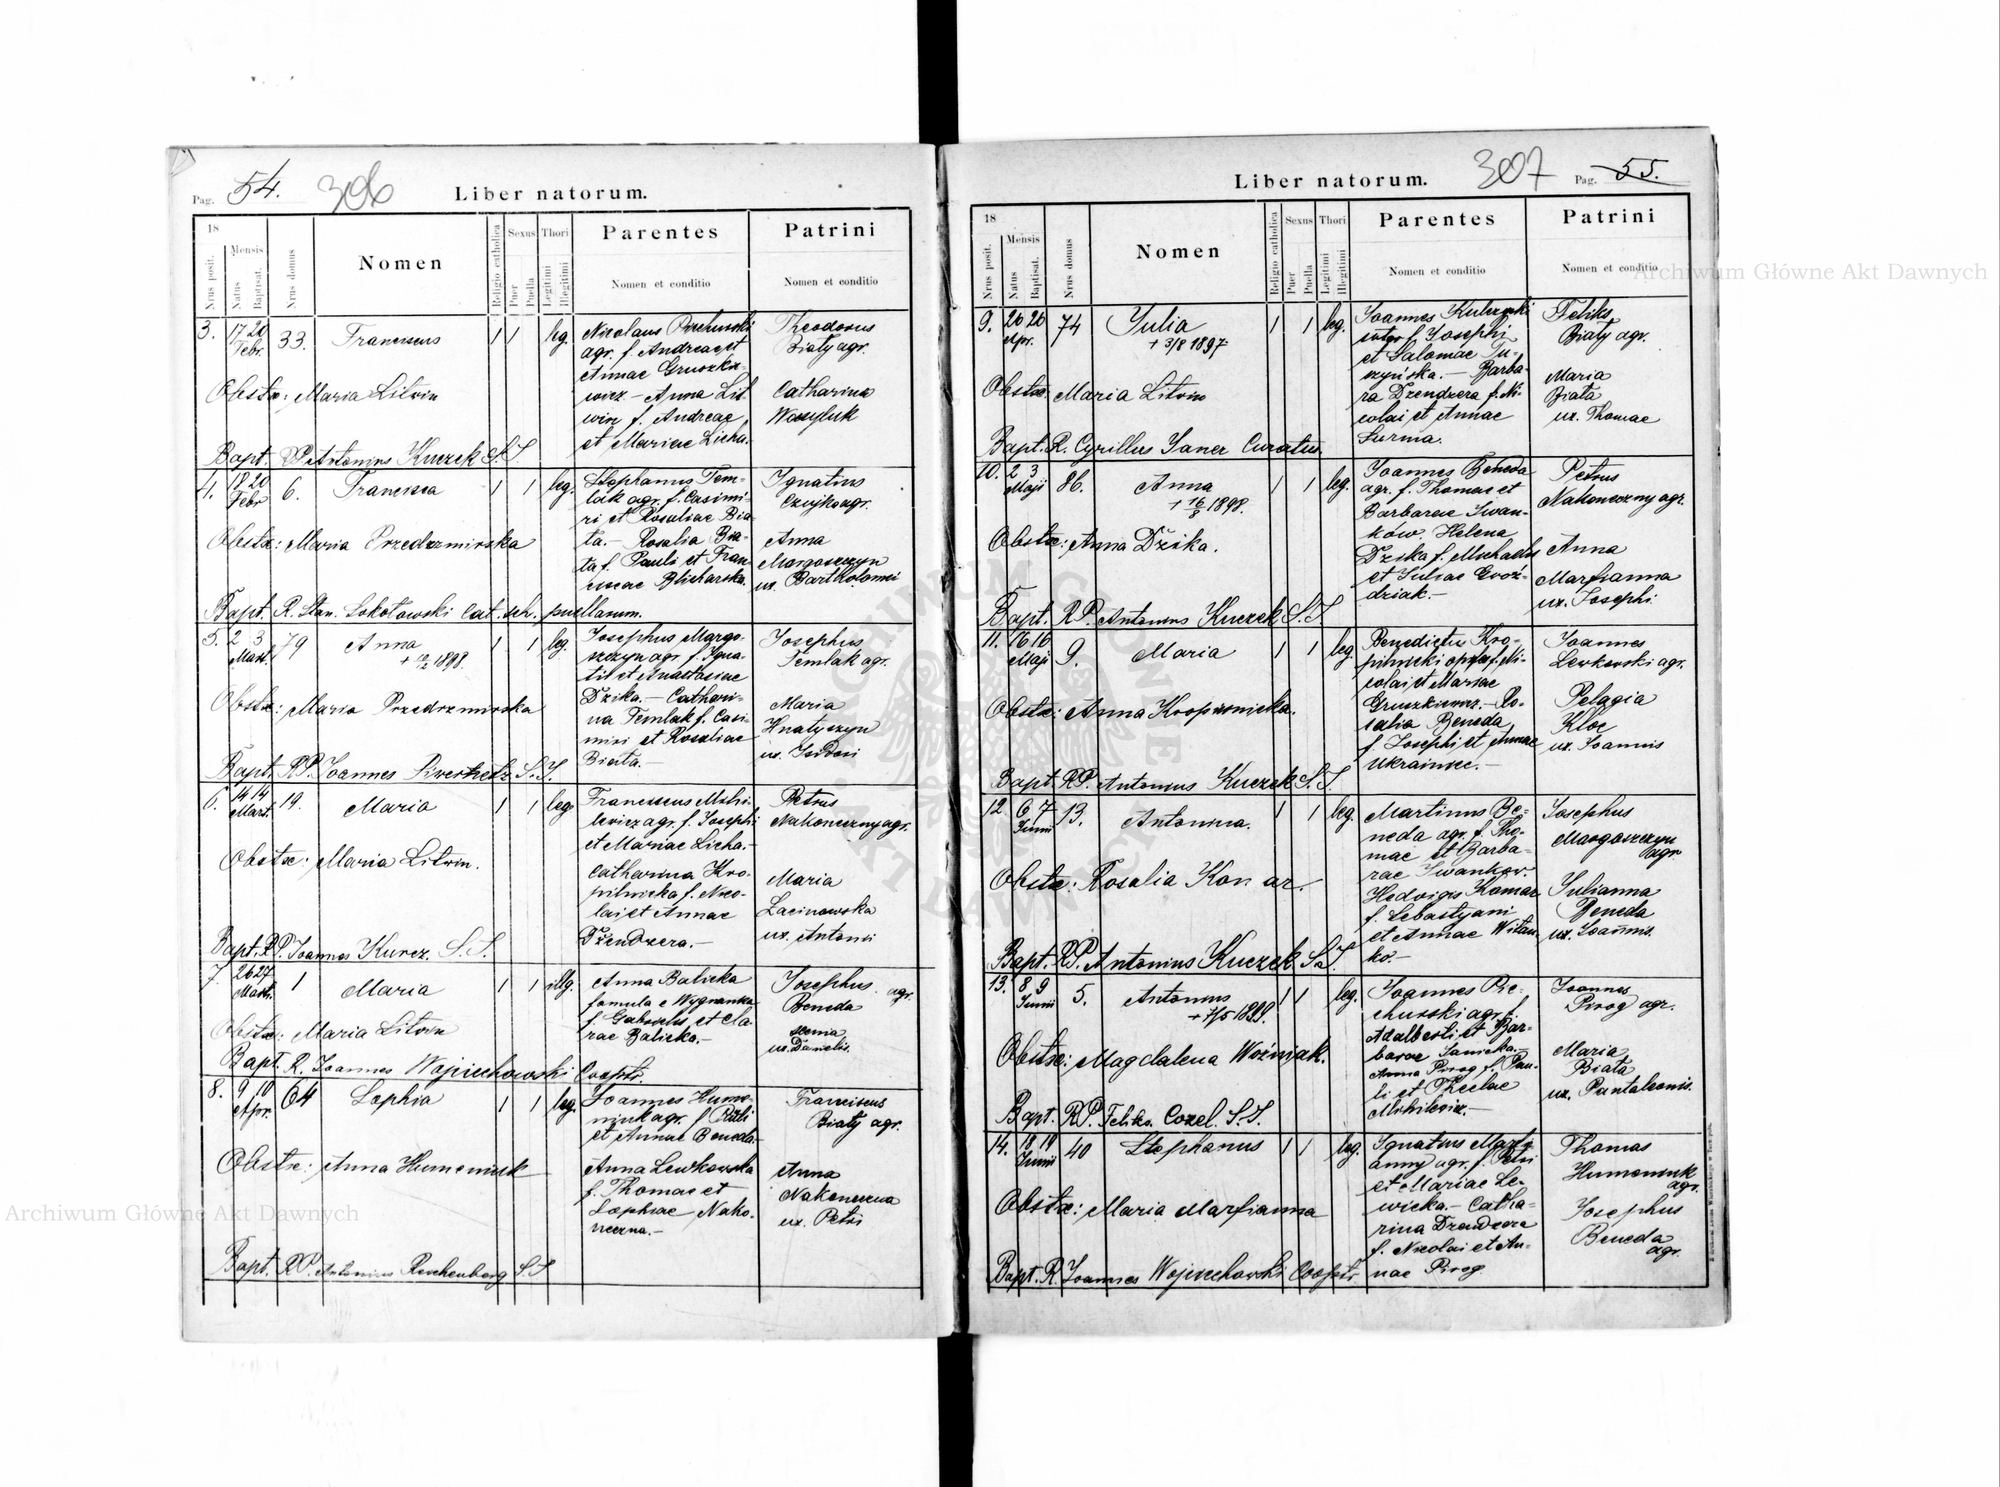 Pag. 54. 306 Liber natorum.
18
Nrus posit.
Mensis
Natus
Baptisat.
Nrus domus
Nomen
Religio catholica
Sexus
Puer
Puella
Thori
Legitimi
Illegitimi
Parentes
Nomen et conditio
Patrini
Nomen et conditio
3. 17 20 Febr. 33. Franciscus 1 1 leg.
Nicolaus
agr. f. Andreae et
Annae Gruszkie-
wicz - Anna Lit-
win f. Andreae
et Mariae Licha.
Theodorus
Biały agr.
Catharina
Wasyluk
Obstx: Maria Litwin
Bapt. RP Antonius Kuczek S.J.
4. 18 20 Febr 6. Francisca 1 1 leg.
Stephanus Tem-
lak agr. f. Casimi-
ri et Rosaliae Bia-
ta. - Rosalia Bia-
ta f. Pauli et Fran-
ciscae Blicharska.
Ignatius
Czujko agr.
Anna
Margoszczyn
ux. Bartholomei
Obstx: Maria Przedrzmirska
Bapt. R. Stan. Sokołowski Cat. sch. puellarum.
5. 2 3 Mart. 79 Anna 1 1 leg.
1898.
Josephus Margo-
szczyn agr. f. Igna-
tii et Anastasiae
Dzika. - Cathari-
na Temlak f. Casi-
miri et Rosaliae
Biata. -
Josephus
Temlak agr.
Maria
Hnatyszyn
ux. Isidori
Obstx: Maria Przedrzmirska
Bapt. RP. Joannes S.J.
6. 14 14 Mart. 19. Maria 1 1 leg
Franciscus Michi-
lewicz agr. f. Josephi
et Mariae Licha. -
Catharina Kro-
pilnicka f. Nico-
lai et Annae
Dżendzera. -
Petrus
Nakoneczny agr.
Maria
Lacinowska
ux. Antoni
Obstx: Maria Litwin.
Bapt. RP. Joannes Kurcz. S.J.
7. 26 27 Mart. 1 Maria 1 1 illg.
Anna Balicka
famula e Wygnanka
f. Gabrielis et Cla-
rae Balicka. -
Josephus agr.
Beneda
ux. Danielis.
Obstx: Maria Litwin
Bapt. R. Joannes Wojciechowski Coopr.
8. 9 10 Apr. 64 Sophia 1 1 leg.
Joannes Hume-
niuk agr. f. Pauli
et Annae Beneda.
Anna Lewkowska
f. Thomae et
Sophiae Nako-
neczna. -
Franciscus
Biały agr.
Anna
Nakoneczna
ux. Petri
Obstx: Anna Humeniuk
Bapt. RP. Antonius Reichenberg S.J.
Liber natorum. 307 Pag. 55.
18
Nrus posit.
Mensis
Natus
Baptisat.
Nrus domus
Nomen
Religio catholica
Sexus
Puer
Puella
Thori
Legitimi
Illegitimi
Parentes
Nomen et conditio
Patrini
Nomen et conditio
9. 20 26 Apr. 74 Julia 1 1 leg.
+ 3/8 1897
Joannes
f. Josephi
et Salomae Tu-
szyńska. - Barba-
ra Dzendzera f. Ni-
colai et Annae
Surma.
Feliks
Biały agr.
Maria
Biata
ux. Thomae
Obstx. Maria Litwin
Bapt. R. Cyrillus Janer Curatus.
10. 2 3 Maji 86. Anna 1 1 leg.
+ 16/8 1898.
Joannes Beneda
agr. f. Thomae et
Barbarae Iwan-
ków. Helena
Dzika f. Michaelis
et Juliae Gwoź-
dziak. -
Petrus
Nakoneczny agr.
Anna
Marfianna
ux. Josephi
Obstx: Anna Dzika.
Bapt. RP. Antonius Kuczek S.J.
11. 16 16 Maji 9. Maria 1 1 leg
Benedictus Kro-
pilnicki f. Ni-
colai et Mariae
Gruszkiewicz. - Ro-
salia Beneda
f. Josephi et Annae
Ukrainiec. -
Joannes
Lewkowski agr.
Pelagia
Kloc
ux. Joannis
Obstx: Anna Kropiwnicka.
Bapt. RP. Antonius Kuczek S.J.
12 6 7 Junii 13. Antonina. 1 1 leg.
Martinus Be-
neda agr. f. Tho-
mae et Barba-
rae Iwanków.
Hedvigis Komar
f. Sebastyani
et Annae Witau-
ko. -
Josephus
Margoszczyn
agr.
Julianna
Beneda
ux. Joannis.
Obstx: Rosalia Komar. -
Bapt. RP. Antonius Kuczek S.J.
13. 8 9 Junii 5. Antonius 1 1 leg.
1899.
Joannes Pie-
churski agr. f.
Adalberti et Bar-
barae Janicka. -
Anna Pirog f. Pau-
li et Theclae
Michilewicz. -
Joannes
Pirog agr.
Maria
Biata
ux. Pantaleonis.
Obstx: Magdalena Woźniak.
Bapt. RP. Feliks. Cozel. S.J.
14. 18 19 Junii 40 Stephanus 1 1 leg.
Ignatius Marfi-
anny agr. f. Petri
et Mariae Le-
wicka. - Catha-
rina Dzendzera
f. Nicolai et An-
nae Pirog.
Thomas
Humeniuk
agr.
Josephus
Beneda
agr.
Obstx: Maria Marfianna
Bapt. R. Joannes Wojciechowski Coopr.
Archiwum Główne Akt Dawnych
Archiwum Główne Akt Dawnych
ARCHIWUM GŁÓWNE AKT DAWNYCH